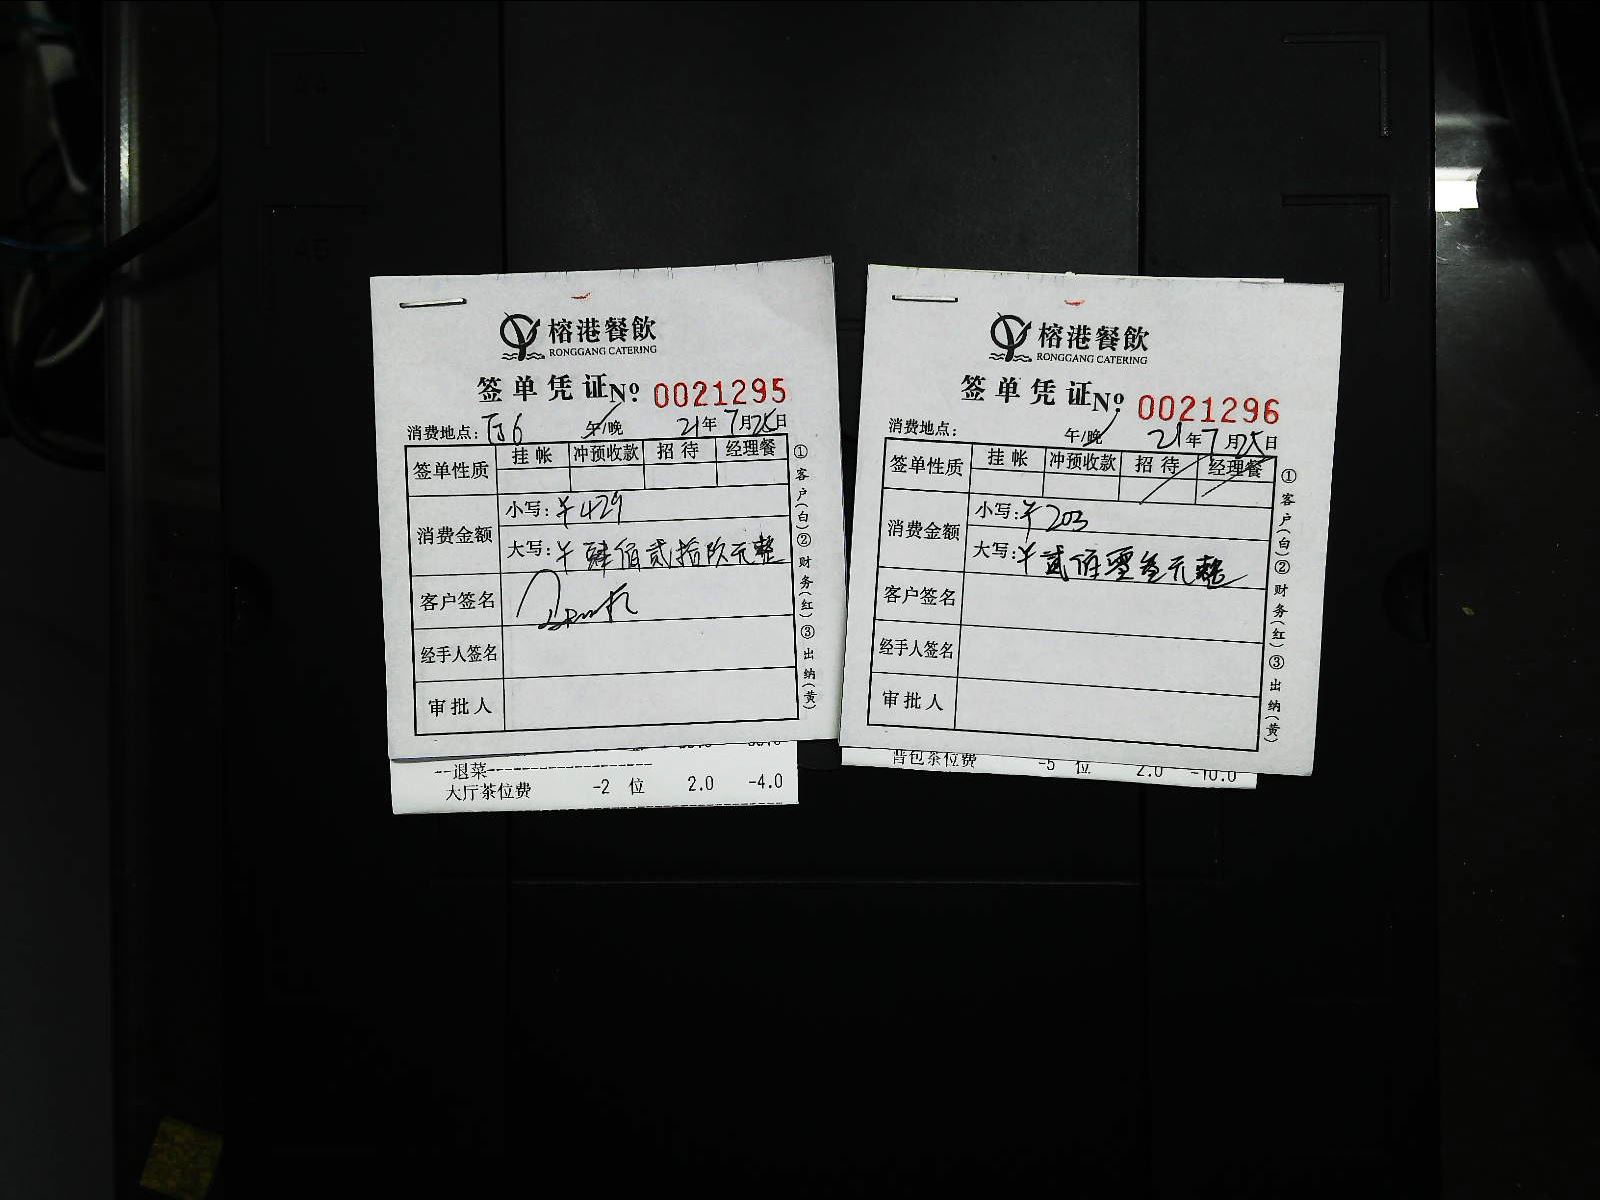 榕港餐飲
RONGGANG CATERING
签单凭证 No: 0021295
消费地点: 午/晚 21年7月25日
签单性质 挂帐 冲预收款 招待 经理餐
消费金额 小写:¥429
大写:¥肆佰贰拾玖元整
客户签名
经手人签名
审批人
①客户(白)②财务(红)③出纳(黄)
--退菜--------------------
大厅茶位费 -2 位 2.0 -4.0
榕港餐飲
RONGGANG CATERING
签单凭证 No: 0021296
消费地点: 午/晚 21年7月25日
签单性质 挂帐 冲预收款 招待 经理餐
消费金额 小写:¥203
大写:¥贰佰零叁元整
客户签名
经手人签名
审批人
①客户(白)②财务(红)③出纳(黄)
茶位费 -5 位 2.0 -10.0